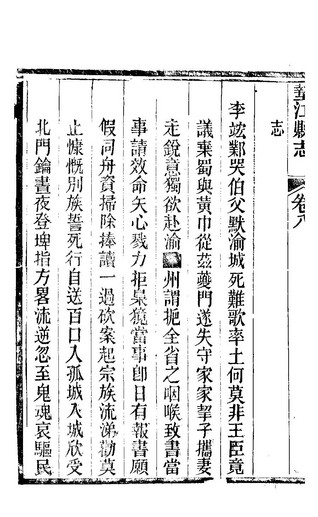 墊江縣志
卷八
志
李竑鄴哭伯父默渝城死難歌率土何莫非王臣竟
議棄蜀與黃巾從茲夔門遂失守家家挈子攜妻
走銳意獨欲赴渝州謂扼全省之咽喉致書當
事請效命矢心戮力拒梟獍當事卽日有報書願
假同舟資掃除捧讀一過砍案起宗族流涕勸莫
止慷慨別族誓死行自送百口入孤城入城欣受
北門鑰晝夜登埤指方畧流逆忽至鬼魂哀驅民